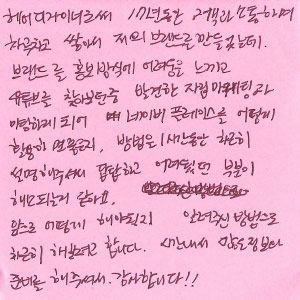 헤어디자이너로써 17년동안 고객과 소통하며
차곡차곡 쌓아서 저의 브랜드를 만들었는데.
브랜드를 홍보방식에 어려움을 느끼고
유튜브를 찾아보던중 발견한 지점 마케팅과
미팅하게 되어 네이버 플레이스를 어떻게
활용하면 좋을지, 방법을 1시간동안 차근히
설명해주셔서 답답하고 어려웠던 부분이
해소되는거 같아요.
앞으로 어떻게 해야될지 알려주신 방법으로
차근히 해보려고 합니다. 시간내서
준비를 해주셔서. 감사합니다!!